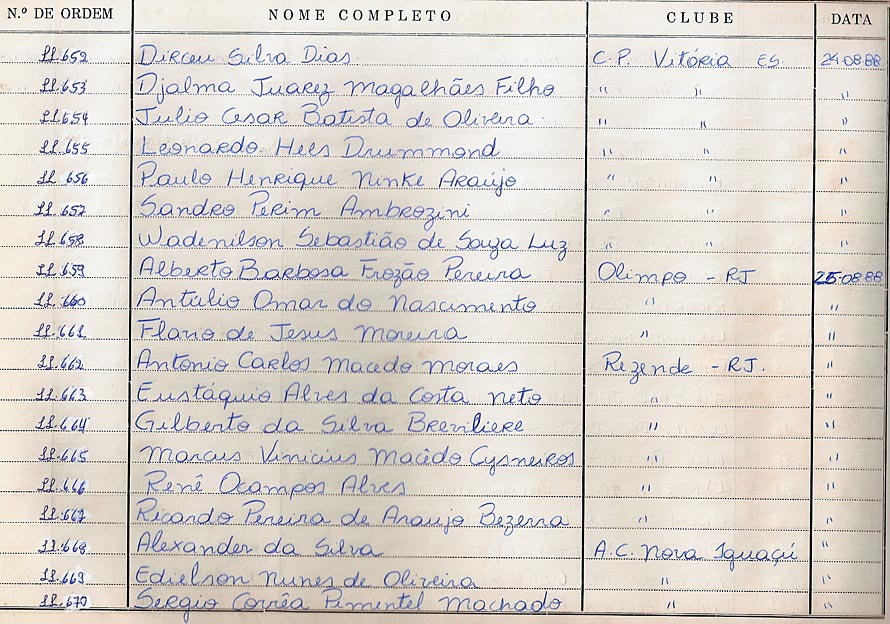 N.º DE ORDEM NOME COMPLETO CLUBE DATA
11.652 Dirceu Silva Dias C.P. Vitória ES. 24.08.88
11.653 Djalma Juarez Magalhães Filho " " "
11.654 Julio Cesar Batista de Oliveira " " "
11.655 Leonardo Hees Drummond " " "
11.656 Paulo Henrique Ninke Araújo " " "
11.657 Sandro Perim Ambrozini " " "
11.658 Wadenilson Sebastião de Souza Luz " " "
11.659 Alberto Barbosa Frozão Pereira Olimpo - RJ 25.08.88
11.660 Antulio Omar do Nascimento " "
11.661 Flavio de Jesus Moreira " "
11.662 Antonio Carlos Macedo Moraes Rezende - RJ. "
11.663 Eustáquio Alves da Costa Neto " "
11.664 Gilberto da Silva Breviliere " "
11.665 Marcus Vinicius Macêdo Cysneiros " "
11.666 Renê Ocampos Alves " "
11.667 Ricardo Pereira de Araujo Bezerra " "
11.668 Alexander da Silva A.C. Nova Iguaçú "
11.669 Edielson Nunes de Oliveira " "
11.670 Sergio Corrêa Pimentel Machado " "